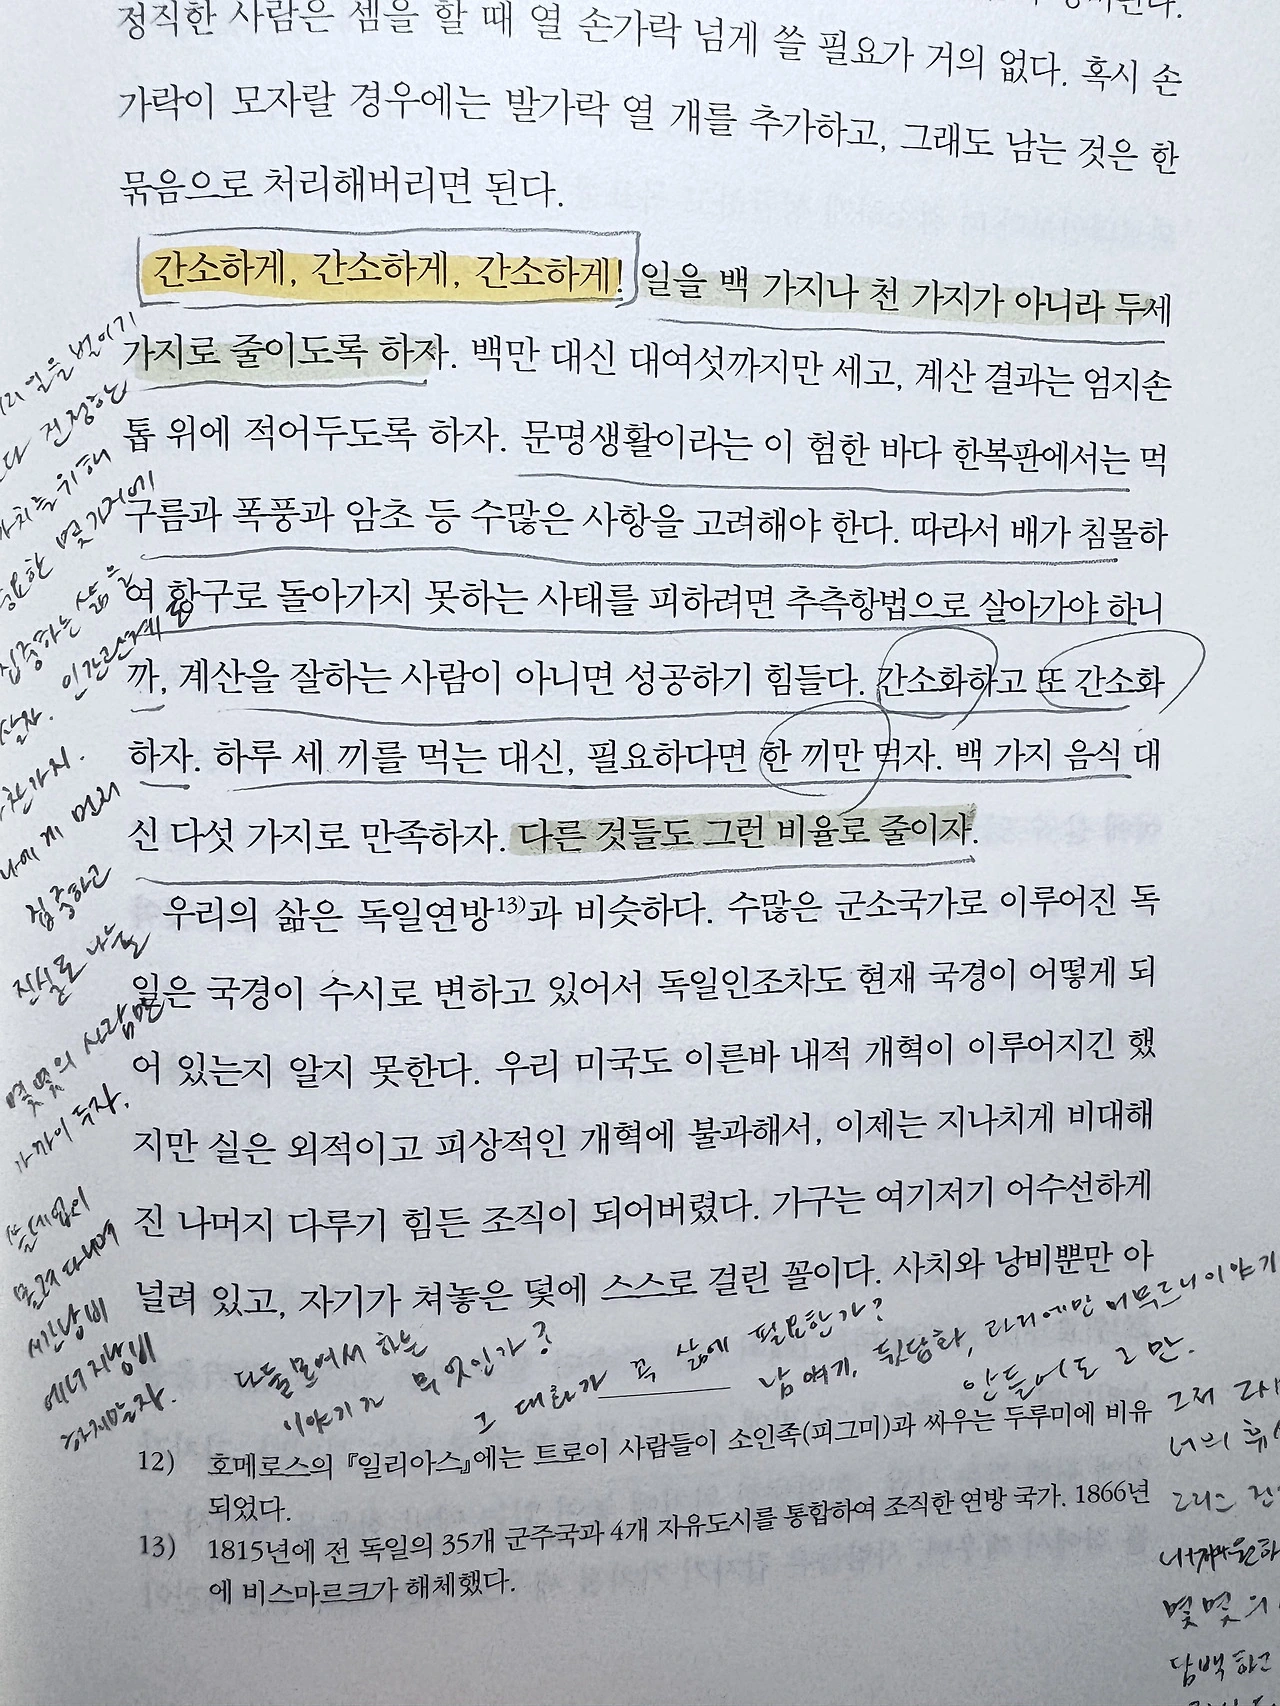 정직한 사람은 셈을 할 때 열 손가락 넘게 쓸 필요가 거의 없다. 혹시 손
가락이 모자랄 경우에는 발가락 열 개를 추가하고, 그래도 남는 것은 한
묶음으로 처리해버리면 된다.
간소하게, 간소하게, 간소하게! 일을 백 가지나 천 가지가 아니라 두세
가지로 줄이도록 하자. 백만 대신 대여섯까지만 세고, 계산 결과는 엄지손
톱 위에 적어두도록 하자. 문명생활이라는 이 험한 바다 한복판에서는 먹
구름과 폭풍과 암초 등 수많은 사항을 고려해야 한다. 따라서 배가 침몰하
여 항구로 돌아가지 못하는 사태를 피하려면 추측항법으로 살아가야 하니
까, 계산을 잘하는 사람이 아니면 성공하기 힘들다. 간소화하고 또 간소화
하자. 하루 세 끼를 먹는 대신, 필요하다면 한 끼만 먹자. 백 가지 음식 대
신 다섯 가지로 만족하자. 다른 것들도 그런 비율로 줄이자.
우리의 삶은 독일연방13)과 비슷하다. 수많은 군소국가로 이루어진 독
일은 국경이 수시로 변하고 있어서 독일인조차도 현재 국경이 어떻게 되
어 있는지 알지 못한다. 우리 미국도 이른바 내적 개혁이 이루어지긴 했
지만 실은 외적이고 피상적인 개혁에 불과해서, 이제는 지나치게 비대해
진 나머지 다루기 힘든 조직이 되어버렸다. 가구는 여기저기 어수선하게
널려 있고, 자기가 쳐놓은 덫에 스스로 걸린 꼴이다. 사치와 낭비뿐만 아
12) 호메로스의 『일리아스』에는 트로이 사람들이 소인족(피그미)과 싸우는 두루미에 비유
되었다.
13) 1815년에 전 독일의 35개 군주국과 4개 자유도시를 통합하여 조직한 연방 국가. 1866년
에 비스마르크가 해체했다.
일을 벌이기
진정한
위해
몇 가지에
집중하는 삶을
살자. 인간관계도
마찬가지.
나에게 먼저
집중하고
진실로 나눌
몇몇의 사람만
가까이 두자.
쓸데없이
몰려다니며
시간낭비
에너지낭비
하지말자.
다들 모여서 하는
이야기가 무엇인가?
그 대화가 꼭 삶에 필요한가?
남 얘기, 뒷담화, 과거에만 머무르는 이야기
안 들어도 그만.
그저
너의
그리고
내가 원하
몇몇의
담백하고